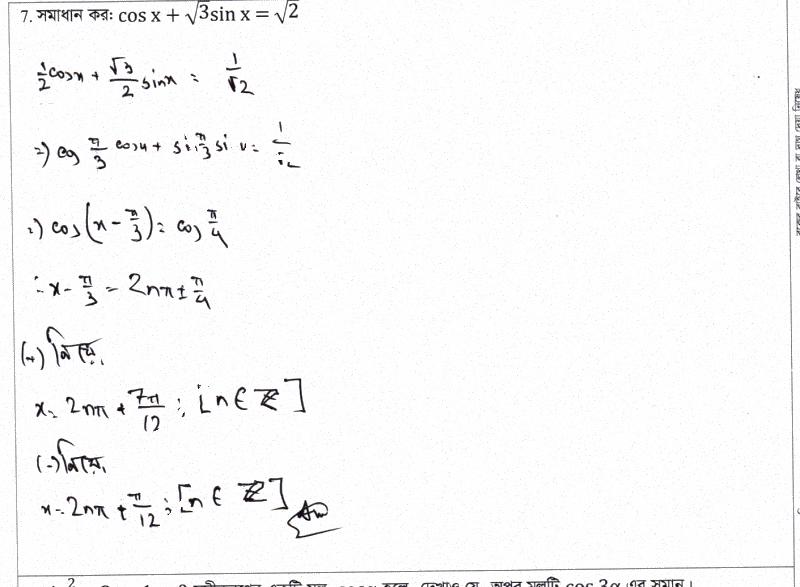 7. সমাধান কর: cos x + √3 sin x = √2
1/2 cos x + √3/2 sin x = 1/√2
⇒) cos π/3 cos x + sin π/3 sin x = 1/√2
⇒) cos(x - π/3) = cos π/4
∴ x - π/3 = 2nπ ± π/4
(+) নিয়ে,
x = 2nπ + 7π/12 ; [n ∈ Z]
(-) নিয়ে,
x = 2nπ + π/12 ; [n ∈ Z] Ans
cos 3α এর সমান।